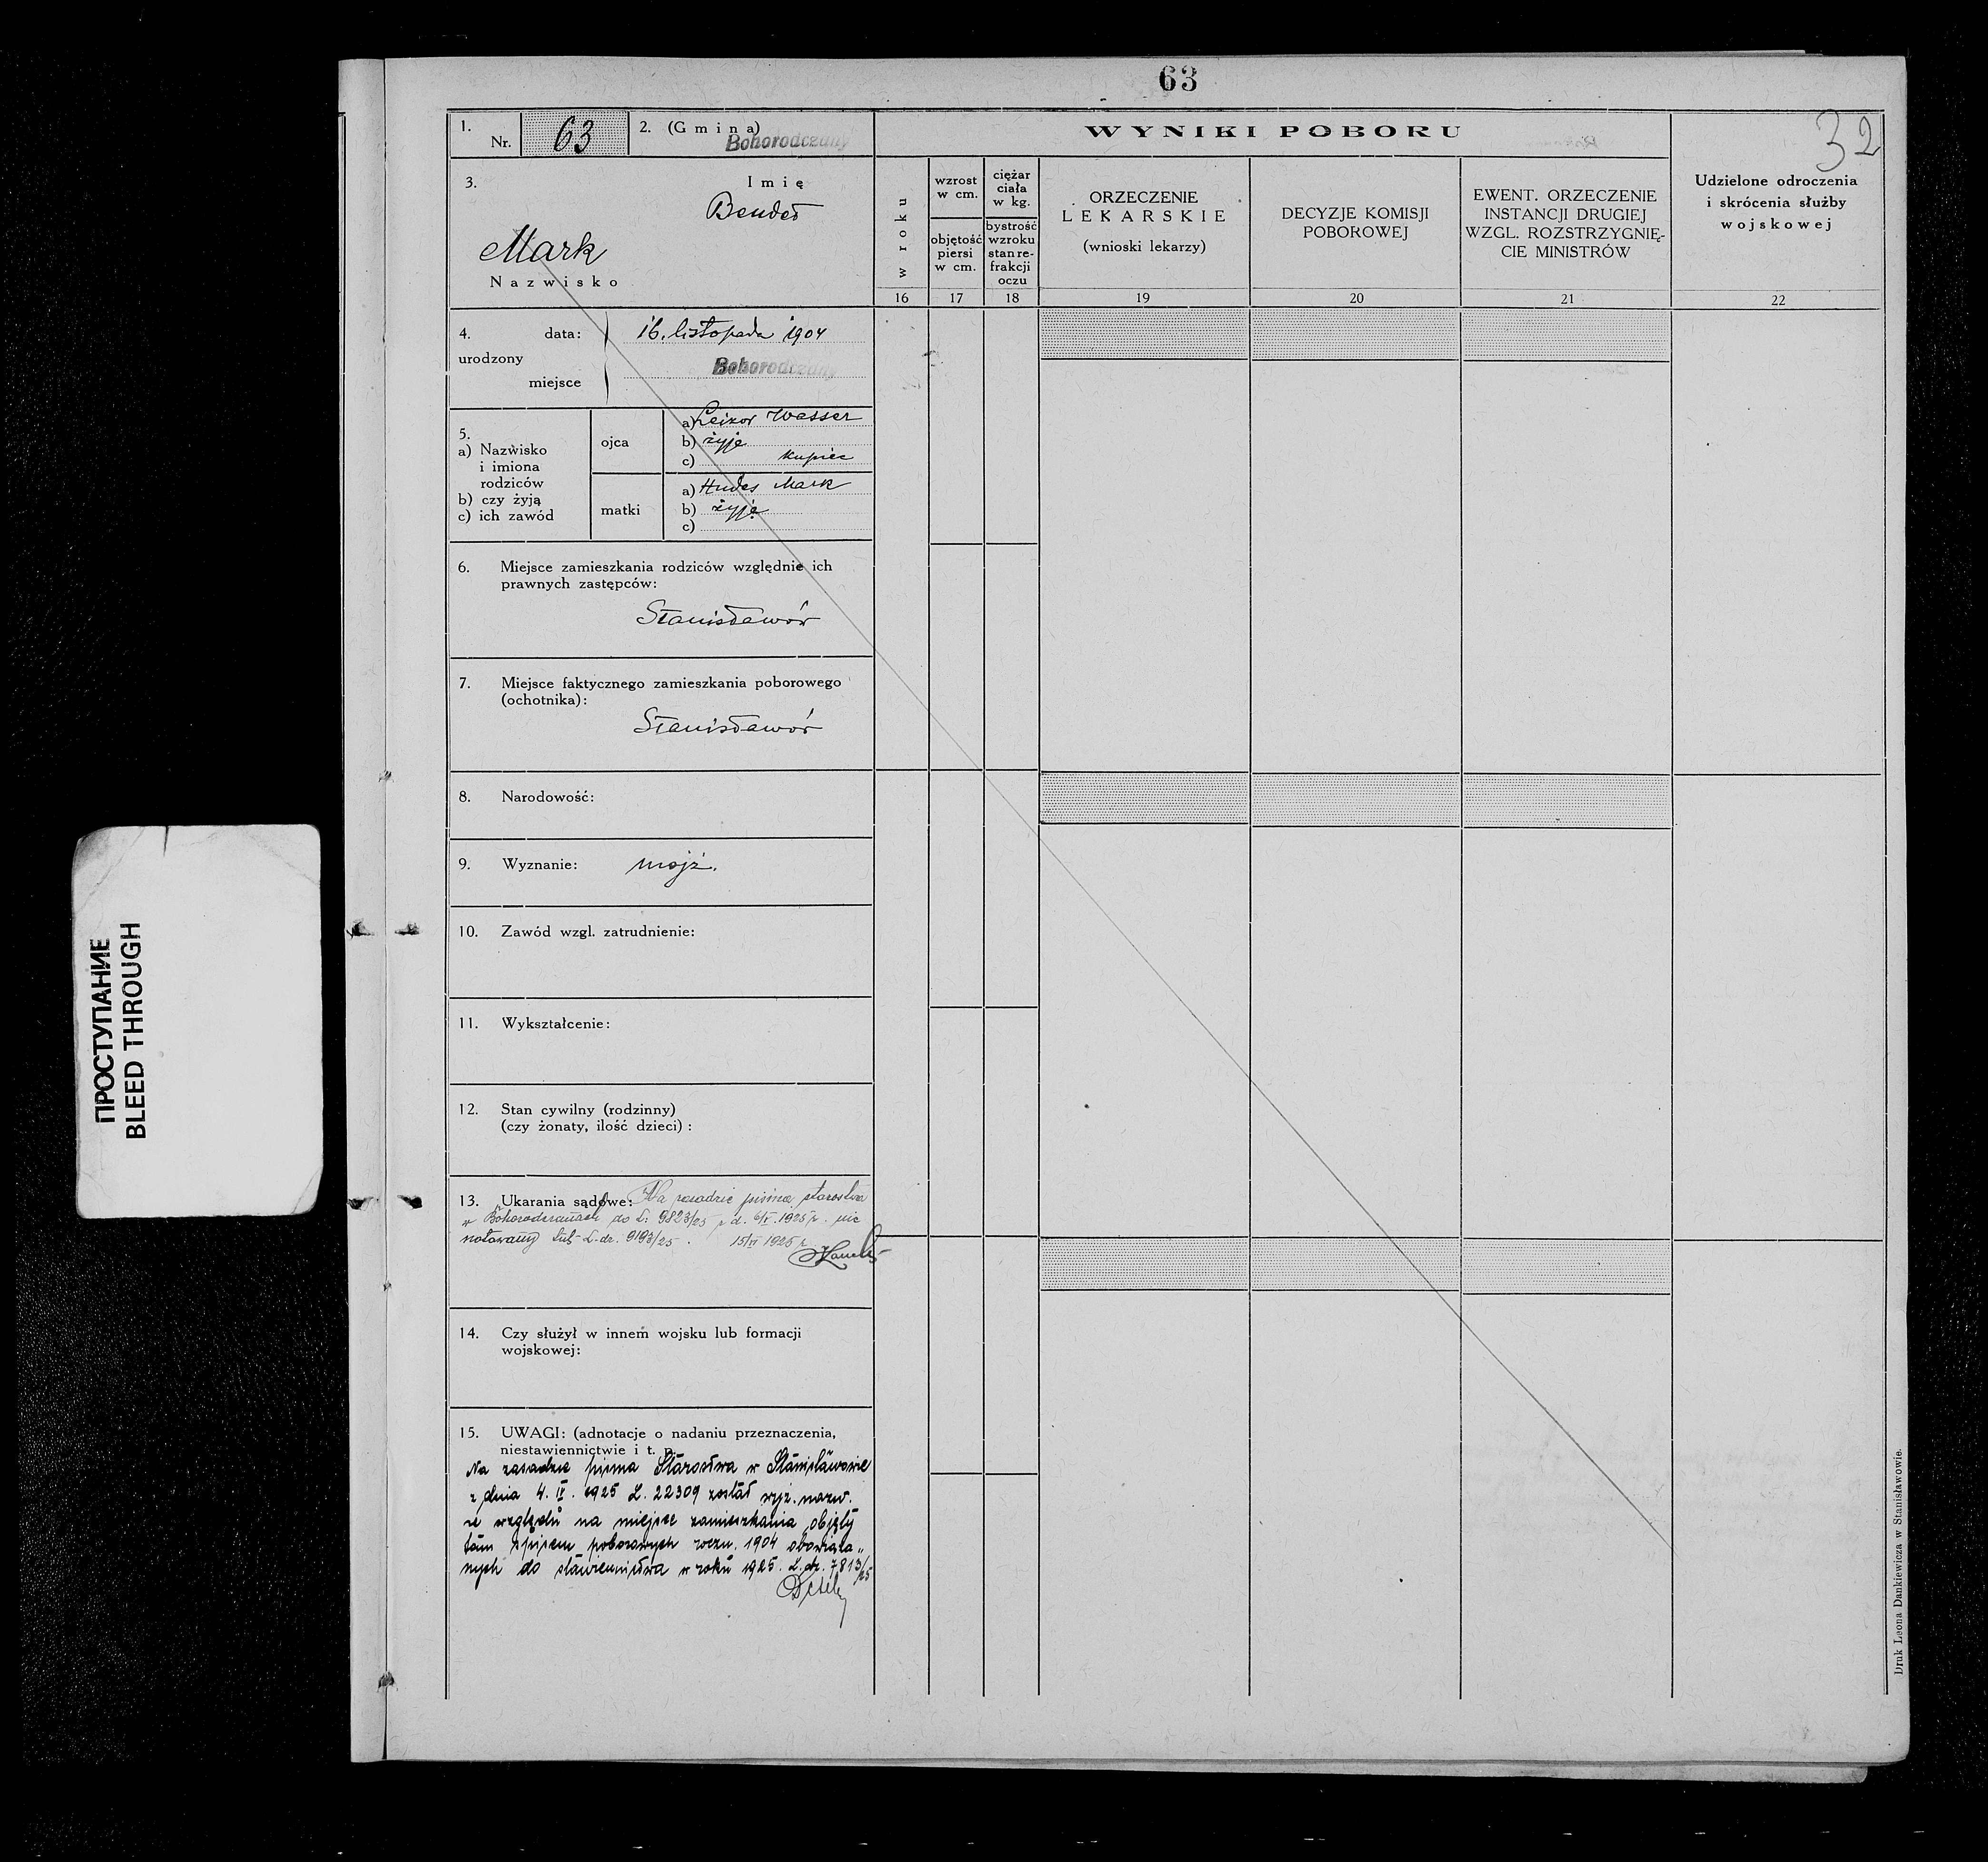 63
1. Nr. 63
2. (Gmina) Bohorodczany
WYNIKI POBORU
32
3. Imię
Mark
Nazwisko
w roku
wzrost
w cm.
objętość
piersi
w cm.
ciężar
ciała
w kg.
bystrość
wzroku
stan re-
frakcji
oczu
ORZECZENIE
LEKARSKIE
(wnioski lekarzy)
DECYZJE KOMISJI
POBOROWEJ
EWENT. ORZECZENIE
INSTANCJI DRUGIEJ
WZGL. ROZSTRZYGNIĘ-
CIE MINISTRÓW
Udzielone odroczenia
i skrócenia służby
wojskowej
16 17 18 19 20 21 22
4. urodzony
data: 16. listopada 1904
miejsce Bohorodczany
5.
a) Nazwisko
i imiona
rodziców
b) czy żyją
c) ich zawód
ojca
a) Leizor Wasser
b) żyje
c) kupiec
matki
a) Hudes Mark
b) żyje
c)
6. Miejsce zamieszkania rodziców względnie ich
prawnych zastępców:
Stanisławów
7. Miejsce faktycznego zamieszkania poborowego
(ochotnika):
Stanisławów
8. Narodowość:
9. Wyznanie: mojż.
10. Zawód wzgl. zatrudnienie:
11. Wykształcenie:
12. Stan cywilny (rodzinny)
(czy żonaty, ilość dzieci) :
13. Ukarania sądowe: Na zasadzie pisma starostwa
w Bohorodczanach do L. 9823/25 z d. 1925 r. nie
notowany L. dz. 9193/25. 1925 r.
14. Czy służył w innem wojsku lub formacji
wojskowej:
15. UWAGI: (adnotacje o nadaniu przeznaczenia,
niestawiennictwie i t. p.
Na zasadzie pisma Starostwa w Stanisławowie
z dnia 4. IV. 1925 L. 22309 został wyż. nazw.
ze względu na miejsce zamieszkania objęty
tam spisem poborowych roczn. 1904 obowiąza„
nych do stawiennictwa w roku 1925. L. dz. 7813/25
Druk Leona Dankiewicza w Stanisławowie.
ПРОСТУПАНИЕ
BLEED THROUGH